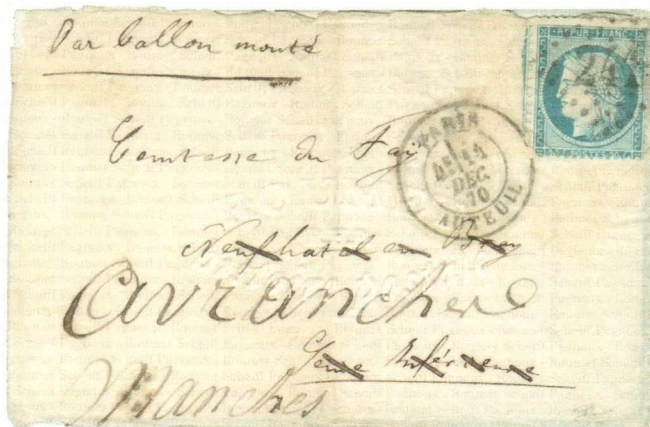 Par ballon monté
REPUB. FRANC.
24
PARIS
DEC.
70
AUTEUIL
Comtesse du Fay
Neufchatel en Bray
Avranches
Seine Inférieure
Manches